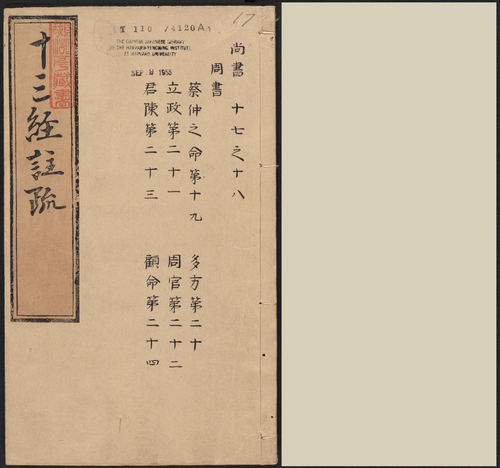 17
T 110 /4120A
THE CHINESE-JAPANESE LIBRARY
OF THE HARVARD-YENCHING INSTITUTE
AT HARVARD UNIVERSITY
SEP 9 1955
尚書 十七之十八
周書
蔡仲之命第十九 多方第二十
立政第二十一 周官第二十二
君陳第二十三 顧命第二十四
十三經註疏